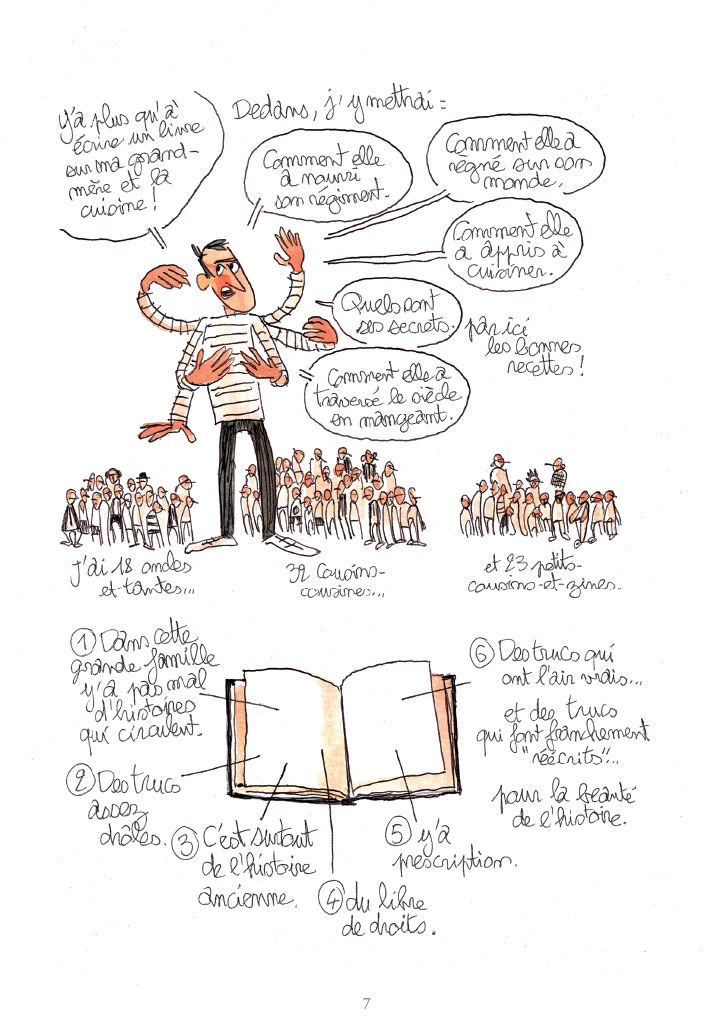 Y'a plus qu'à
écrire un livre
sur ma grand-
mère et la
cuisine !
Dedans, j'y mettrai =
Comment elle
a nourri
son régiment.
Comment elle a
régné sur son
monde.
Comment elle
a appris à
cuisiner.
Quels sont
ses secrets.
par ici
les bonnes
recettes !
Comment elle a
traversé le siècle
en mangeant.
J'ai 18 oncles
et tantes...
32 cousins-
cousines...
et 23 petits-
cousins-et-zines.
① Dans cette
grande famille
y'a pas mal
d'histoires
qui circulent.
② Des trucs
assez
drôles.
③ C'est surtout
de l'histoire
ancienne.
④ du libre
de droits.
⑤ y'a
prescription.
⑥ Des trucs qui
ont l'air vrais...
et des trucs
qui font franchement
"réécrits"...
pour la beauté
de l'histoire.
7